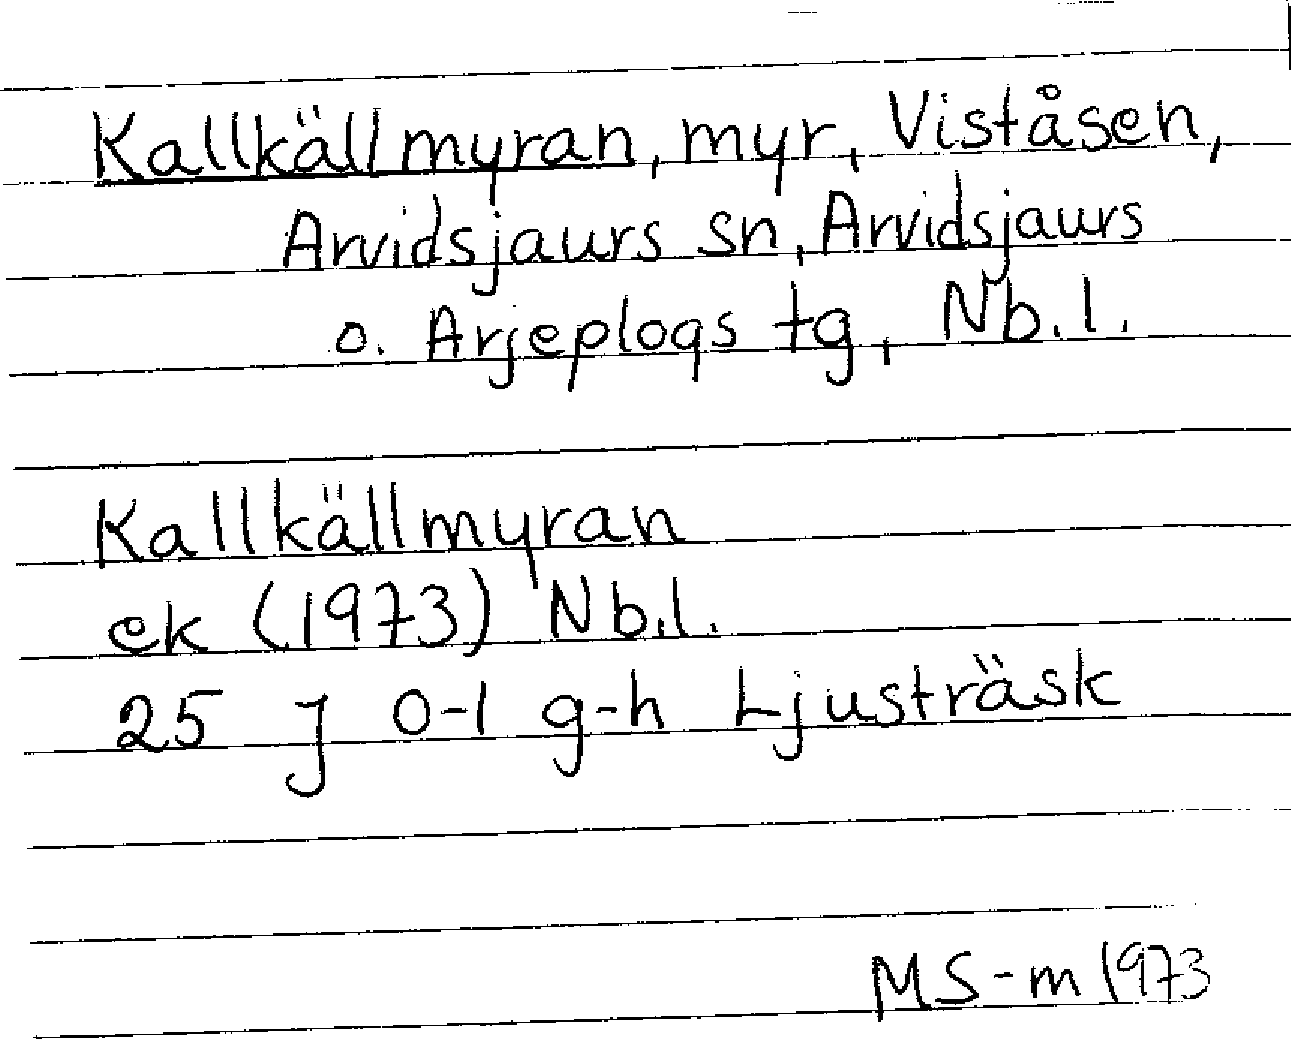 Kallkällmyran, myr, Viståsen,
Arvidsjaurs sn, Arvidsjaurs
o. Arjeplogs tg, Nb.l.
Kallkällmyran
ek (1973) Nb.l.
25 J 0-1 g-h Ljusträsk
MS-m 1973